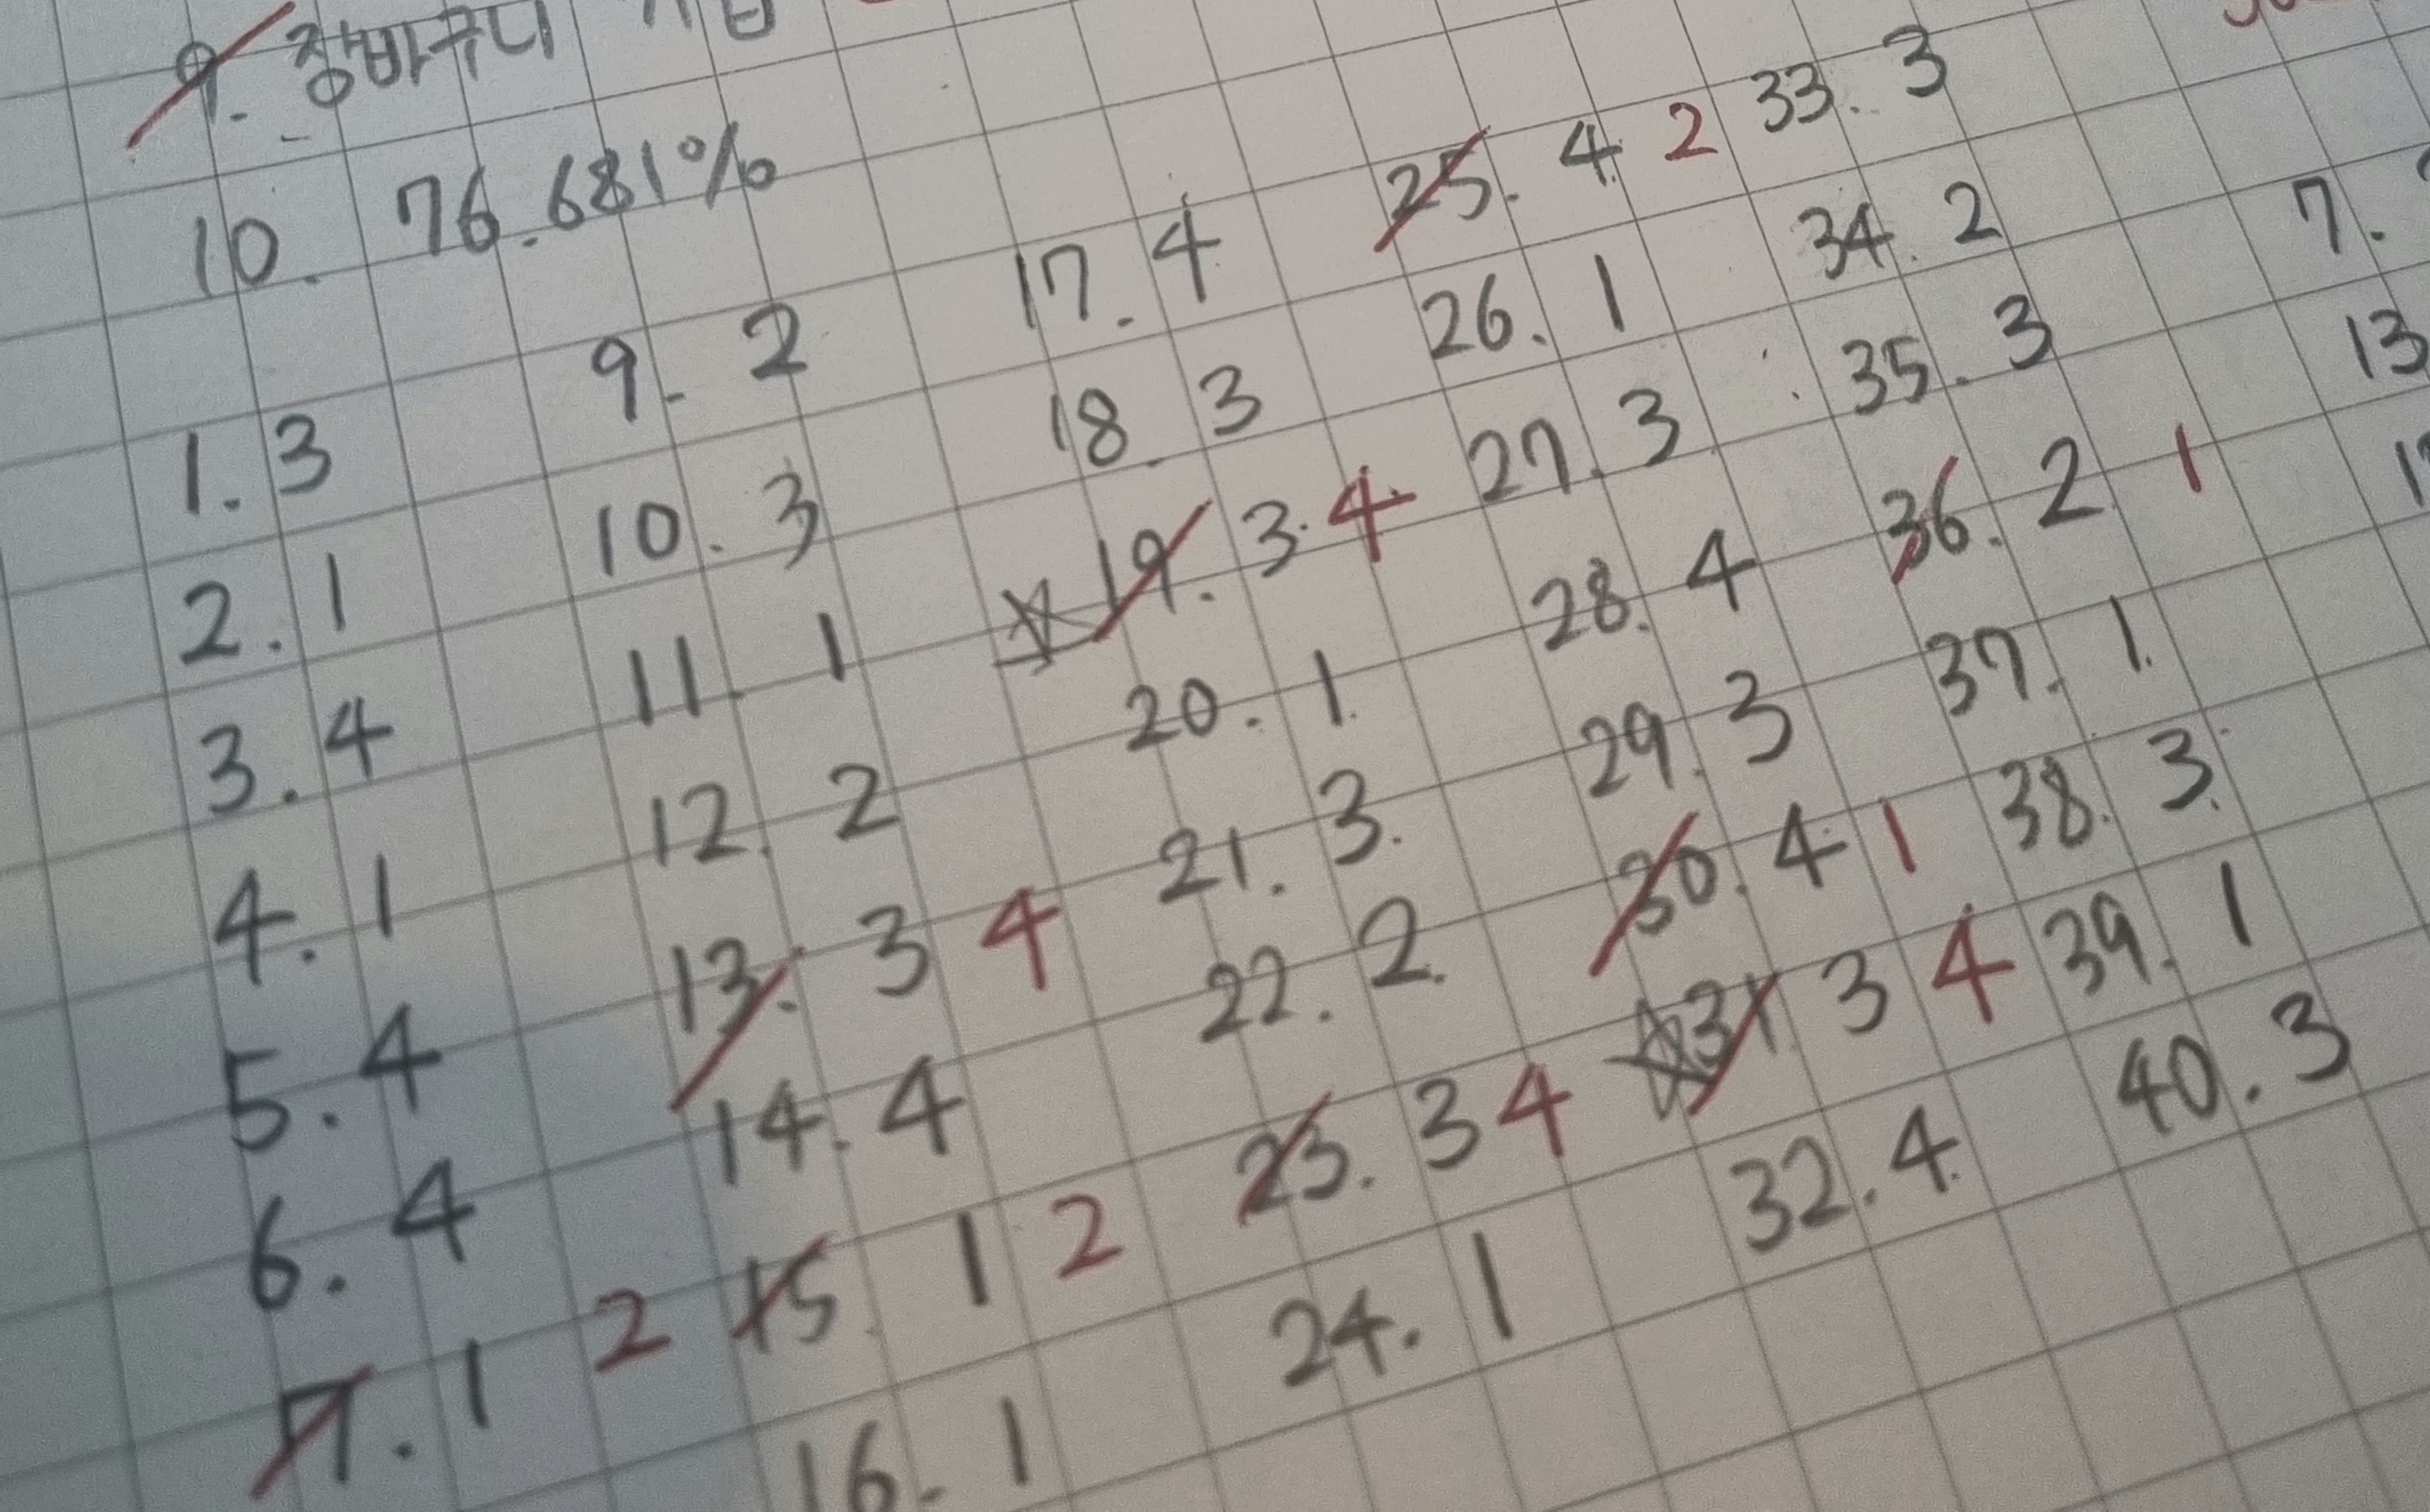 9. 장바구니
10. 76.681%
1. 3
2. 1
3. 4
4. 1
5. 4
6. 4
7. 1 2
9. 2
10. 3
11. 1
12. 2
13. 3 4
14. 4
15. 1 2
16. 1
17. 4
18. 3
☆ 19. 3 4
20. 1
21. 3
22. 2
23. 3 4
24. 1
25. 4 2
26. 1
27. 3
28. 4
29. 3
30. 4 1
☆ 31. 3 4
32. 4
33. 3
34. 2
35. 3
36. 2 1
37. 1
38. 3
39. 1
40. 3
7.
13